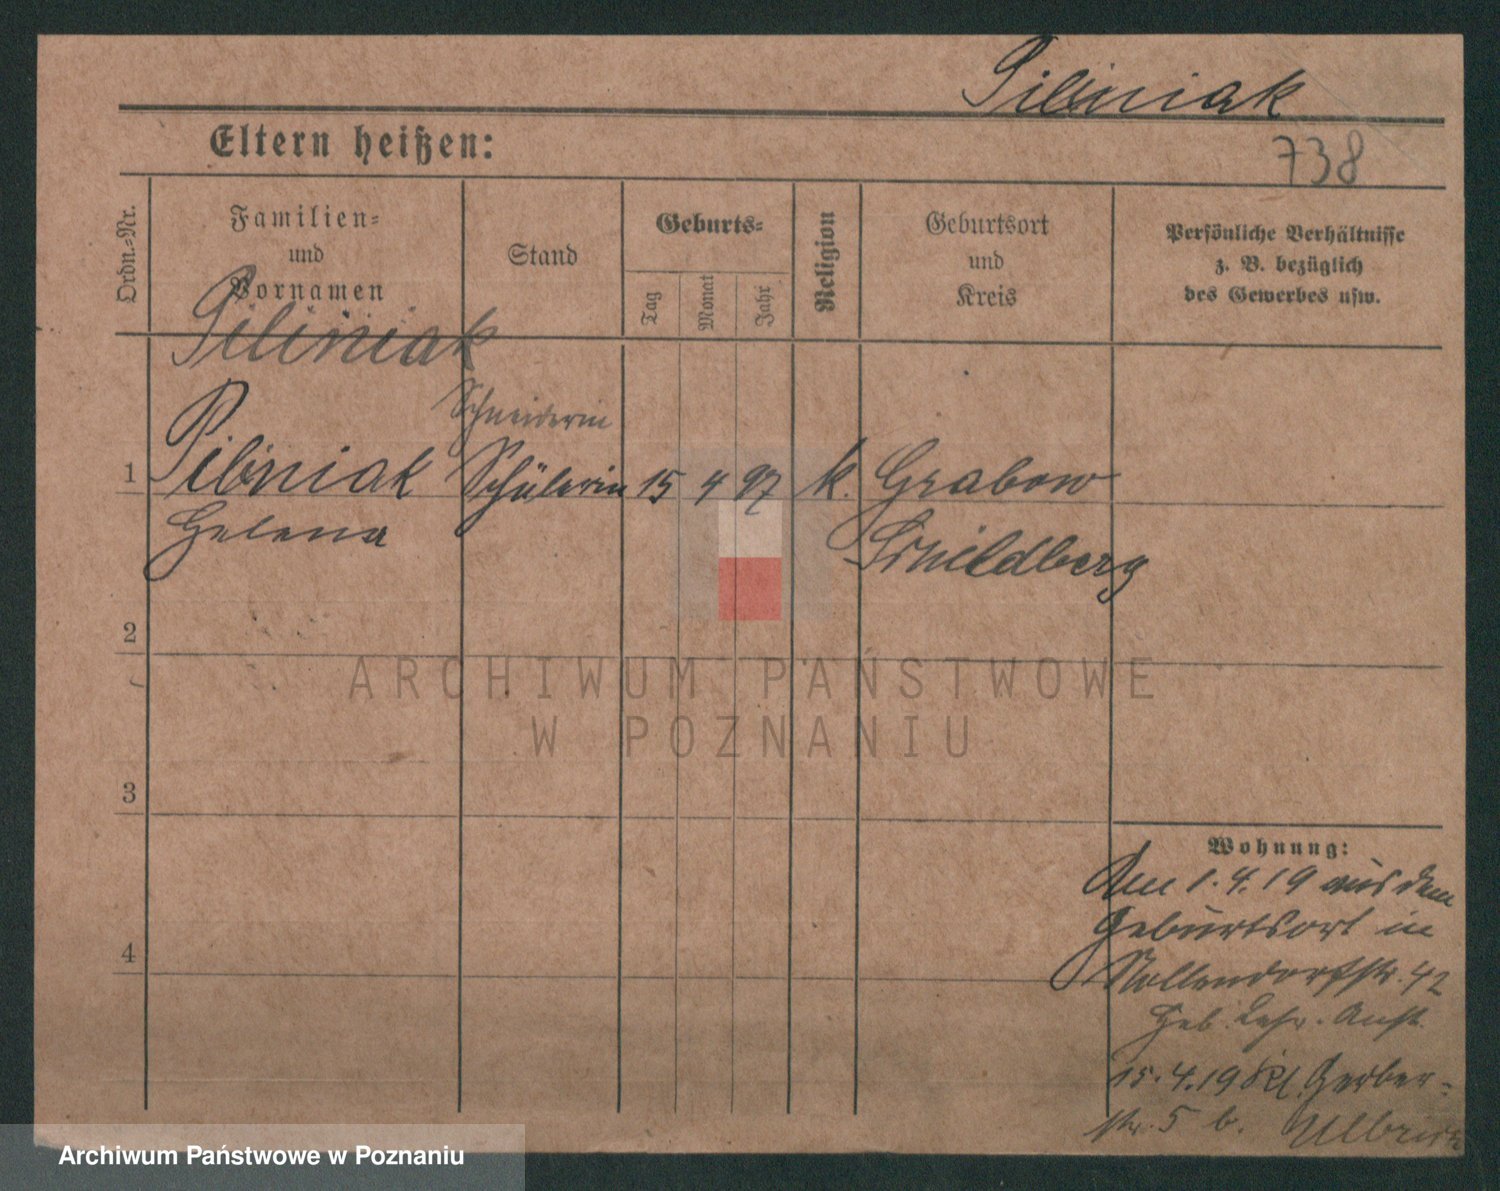 Piliniak
Eltern heißen:
738
Ordn.-Nr.
Familien-
und
Vornamen
Stand
Geburts-
Tag
Monat
Jahr
Religion
Geburtsort
und
Kreis
Persönliche Verhältnisse
z. B. bezüglich
des Gewerbes usw.
Piliniak
Schneiderin
1 Piliniak Schülerin 15 4 97 k. Grabow
Helena Schildberg
2
3
4
Wohnung:
Am 1.4.19 aus dem
Geburtsort in
Nollendorfstr. 42
Heb. Lehr. Anst.
15.4.19 Kl. Gerber-
str. 5 b.
ARCHIWUM PAŃSTWOWE
W POZNANIU
Archiwum Państwowe w Poznaniu